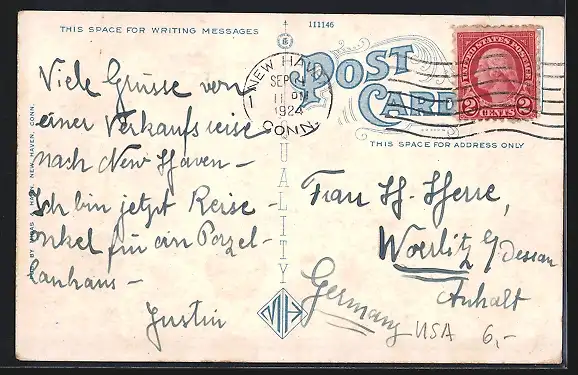 THIS SPACE FOR WRITING MESSAGES
111146
POST
CARD
THIS SPACE FOR ADDRESS ONLY
NEW HAVEN
SEP
11 PM
1924
CONN.
UNITED STATES POSTAGE
2 CENTS 2
QUALITY
NEW HAVEN, CONN.
Viele Grüsse von
einer Verkaufsreise
nach New Haven –
Ich bin jetzt Reise-
onkel für ein Porzel-
lanhaus –
Justin
Frau H. Herre,
Woerlitz b/Dessau
Anhalt
Germany
USA 6,-